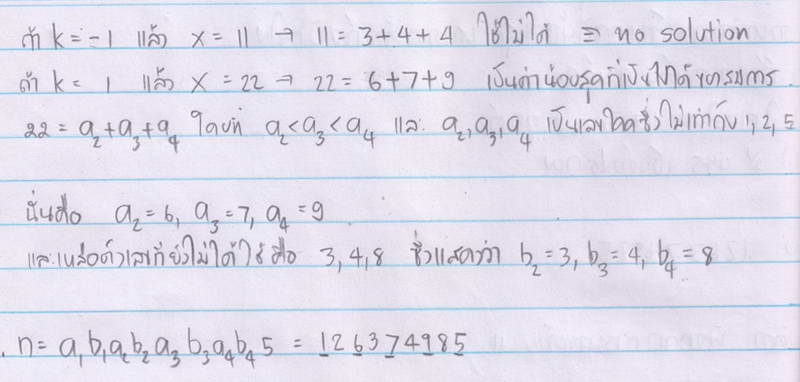 ถ้า k = -1 แล้ว x = 11 → 11 = 3+4+4 ใช้ไม่ได้ ∋ no solution
ถ้า k = 1 แล้ว x = 22 → 22 = 6+7+9 เป็นค่าน้อยสุดที่เป็นไปได้ของสมการ
22 = a₂+a₃+a₄ โดยที่ a₂<a₃<a₄ และ a₂,a₃,a₄ เป็นเลขโดดซึ่งไม่เท่ากับ 1,2,5
นั่นคือ a₂=6, a₃=7, a₄=9
และเหลือตัวเลขที่ยังไม่ได้ใช้คือ 3,4,8 ซึ่งแสดงว่า b₂=3, b₃=4, b₄=8
n = a₁b₁a₂b₂a₃b₃a₄b₄5 = 126374985